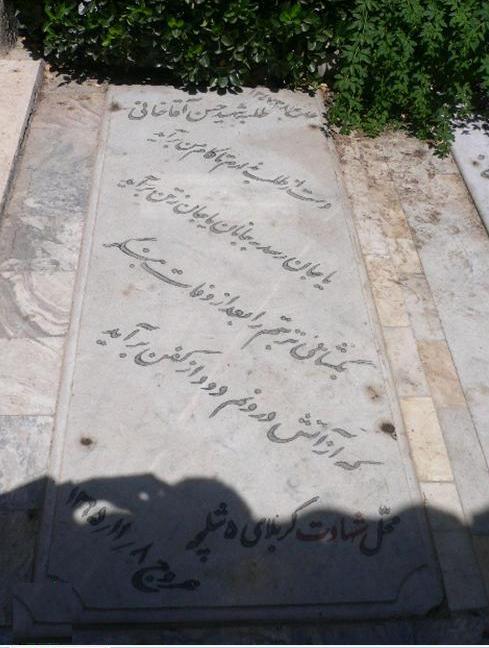 طلبه شهید حسن آقاخانی
دست از طلب ندارم تا کام من برآید
یا جان رسد به جانان یا جان ز تن برآید
بگشای تربتم را بعد از وفات بنگر
که از آتش درونم دود از کفن برآید
محل شهادت کربلای ۵ شلمچه
عروج ۸ /۱۱/ ۱۳۶۵